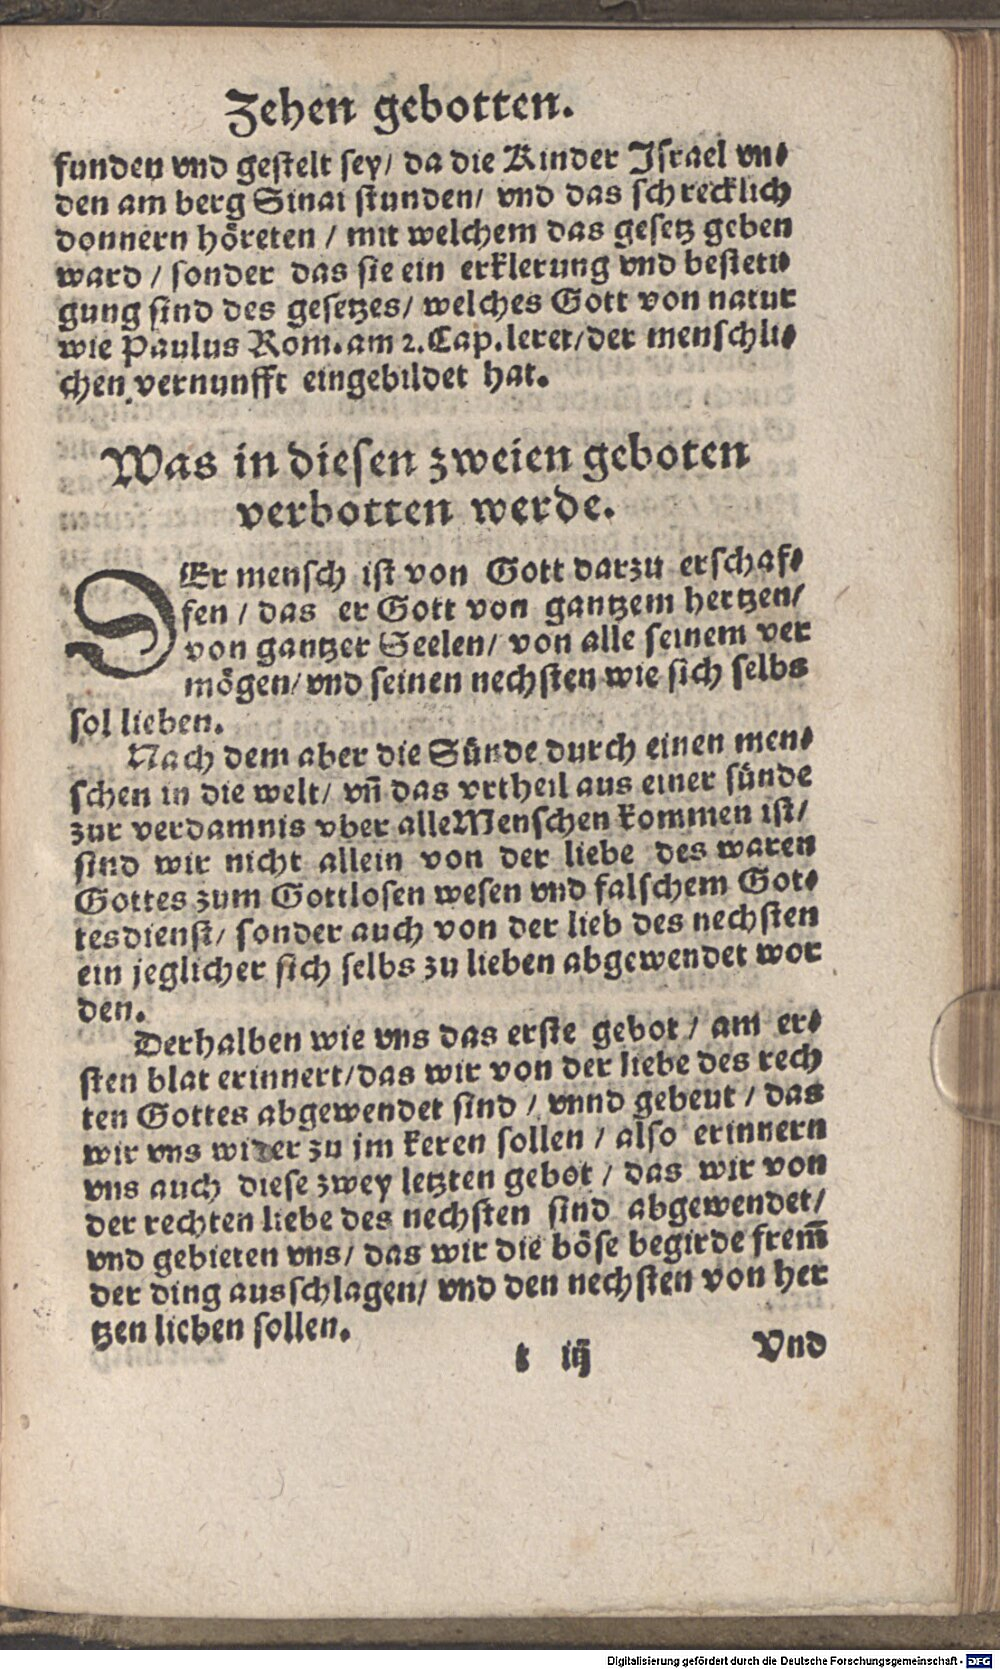 Zehen gebotten.
funden vnd gestelt sey/ da die Kinder Jsrael vn⸗
den am berg Sinai stunden/ vnd das schrecklich
donnern höreten / mit welchem das gesetz geben
ward / sonder das sie ein erklerung vnd besteti⸗
gung sind des gesetzes/ welches Gott von natur
wie Paulus Rom. am 2. Cap. leret/ der menschli⸗
chen vernunfft eingebildet hat.
Was in diesen zweien geboten
verbotten werde.
DEr mensch ist von Gott darzu erschaf⸗
fen / das er Gott von gantzem hertzen/
von gantzer Seelen/ von alle seinem ver
mögen/ vnd seinen nechsten wie sich selbs
sol lieben.
Nach dem aber die Sünde durch einen men⸗
schen in die welt/ vñ das vrtheil aus einer sünde
zur verdamnis vber alle Menschen kommen ist/
sind wir nicht allein von der liebe des waren
Gottes zum Gottlosen wesen vnd falschem Got⸗
tesdienst/ sonder auch von der lieb des nechsten
ein jeglicher sich selbs zu lieben abgewendet wor
den.
Derhalben wie vns das erste gebot / am er⸗
sten blat erinnert/ das wir von der liebe des rech
ten Gottes abgewendet sind / vnnd gebeut / das
wir vns wider zu jm keren sollen / also erinnern
vns auch diese zwey letzten gebot / das wir von
der rechten liebe des nechsten sind abgewendet/
vnd gebieten vns/ das wir die böse begirde frem̃
der ding ausschlagen/ vnd den nechsten von her
tzen lieben sollen.
t iij Vnd
Digitalisierung gefördert durch die Deutsche Forschungsgemeinschaft - DFG